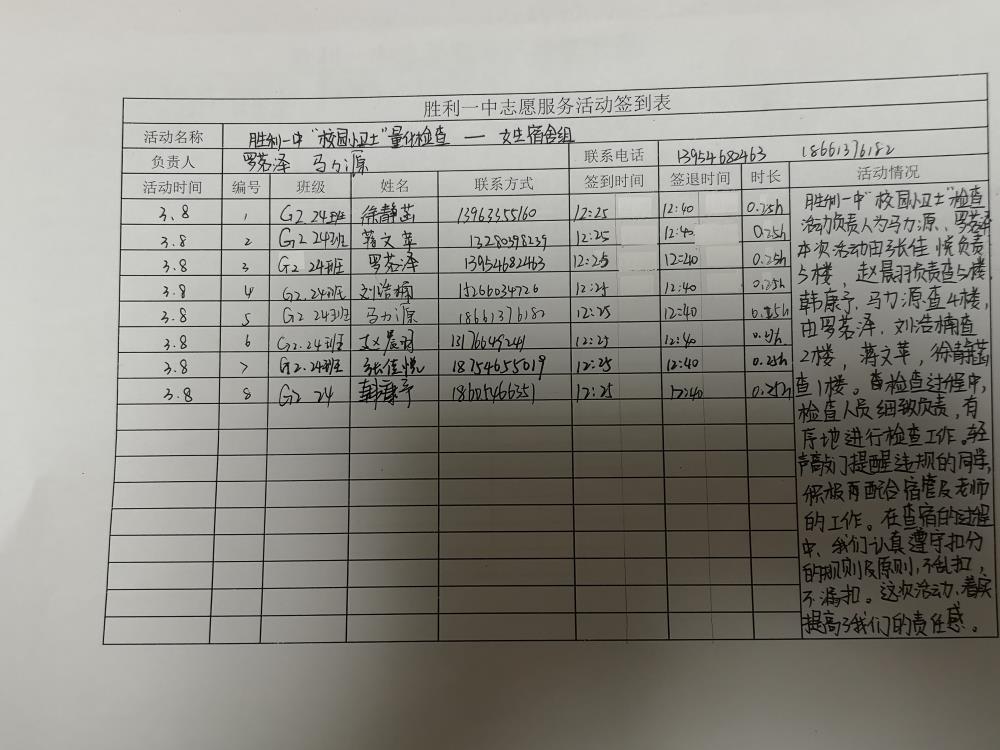 胜利一中志愿服务活动签到表
活动名称 胜利一中"校园小卫士"量化检查 — 女生宿舍组
负责人 罗茗泽 马力源 联系电话 13954682463 18661376182
活动时间 编号 班级 姓名 联系方式 签到时间 签退时间 时长 活动情况
3.8 1 G2 24班 徐静茹 13963355160 12:25 12:40 0.25h
3.8 2 G2 24班 蒋文苹 13280398239 12:25 12:40 0.25h
3.8 3 G2 24班 罗茗泽 13954682463 12:25 12:40 0.25h
3.8 4 G2.24班 刘浩楠 15266034726 12:25 12:40 0.25h
3.8 5 G2 24班 马力源 18661376182 12:25 12:40 0.25h
3.8 6 G2.24班 赵晨羽 13176649241 12:25 12:40 0.25h
3.8 7 G2.24班 张佳悦 18754655019 12:25 12:40 0.25h
3.8 8 G2 24 韩康予 12:25 12:40 0.25h
胜利一中"校园小卫士"检查
活动负责人为马力源、罗茗泽
本次活动由张佳悦负责
5楼，赵晨羽负责查5楼，
韩康予、马力源查4楼，
由罗茗泽、刘浩楠查
2楼，蒋文苹，徐静茹
查1楼。查检查过程中，
检查人员细致负责，有
序地进行检查工作。轻
声敲门提醒违规的同学，
积极再配合宿管及老师
的工作。在查宿的过程
中、我们认真遵守扣分
的规则及原则，不乱扣，
不漏扣。这次活动、着实
提高了我们的责任感。